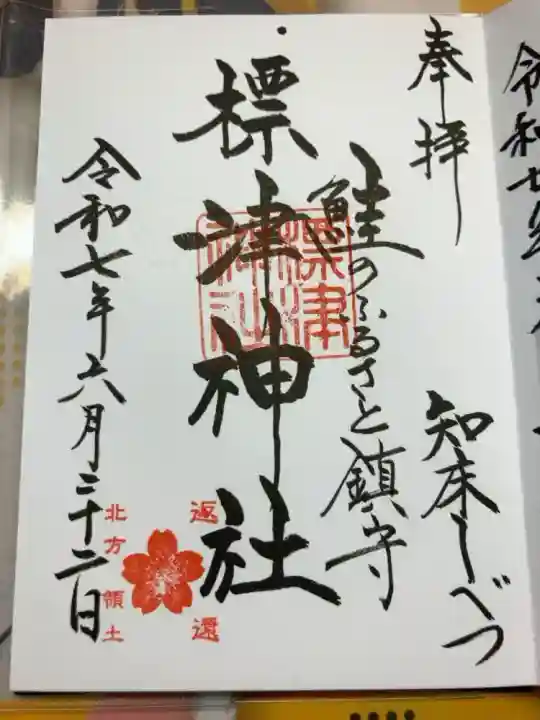 奉拝
知床しべつ
鮭のふるさと鎮守
標津神社
標津神社
返還
北方領土
令和七年六月二十二日
令和七年